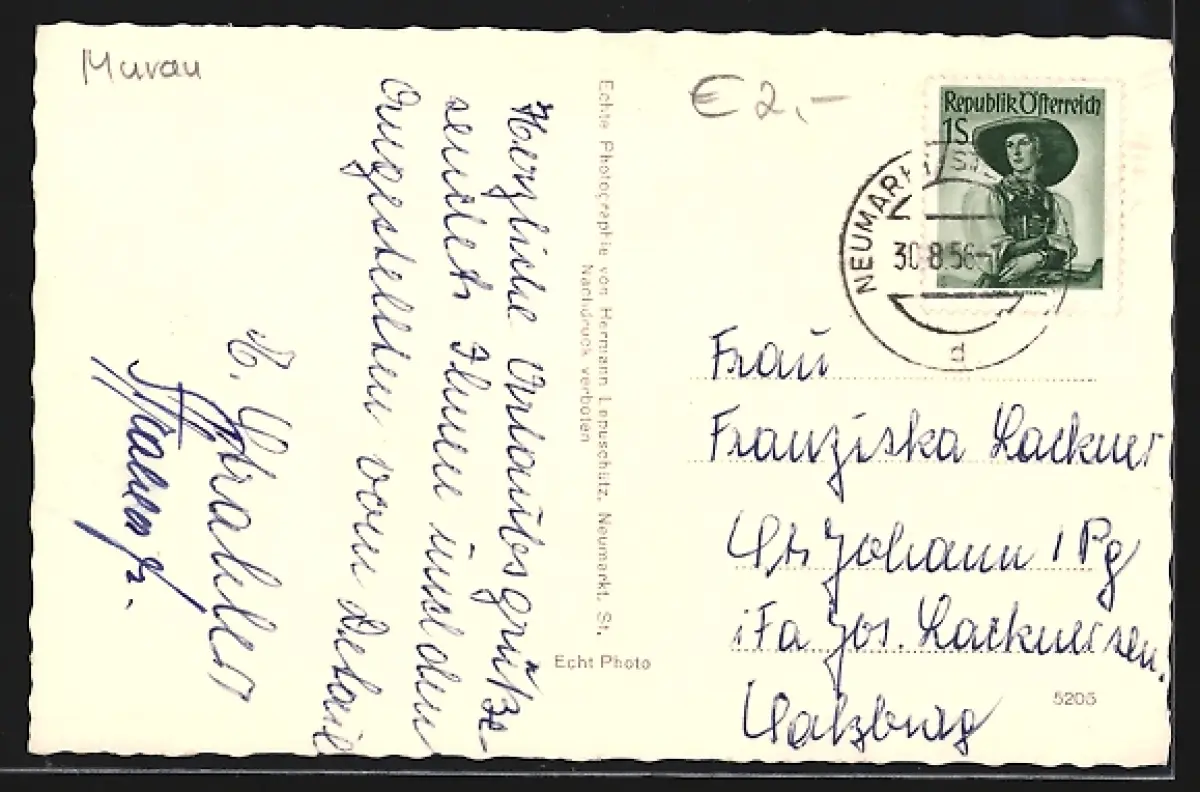 Murau
€ 2,-
Republik Österreich
1S
NEUMARKT
30.8.56
d
Herzliche Urlaubsgrüße
sendet Ihnen und den
Angestellten vom Detail
Echte Photographie von Hermann Lapuschütz, Neumarkt, St.
Nachdruck verboten
Echt Photo
Frau
Franziska Lackner
St Johann / Pg
iFa Jos. Lackner sen.
Salzburg
5205